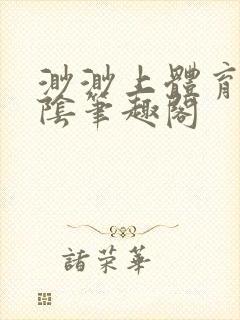 渺渺上體育
陰筆趣閣
諸荣華